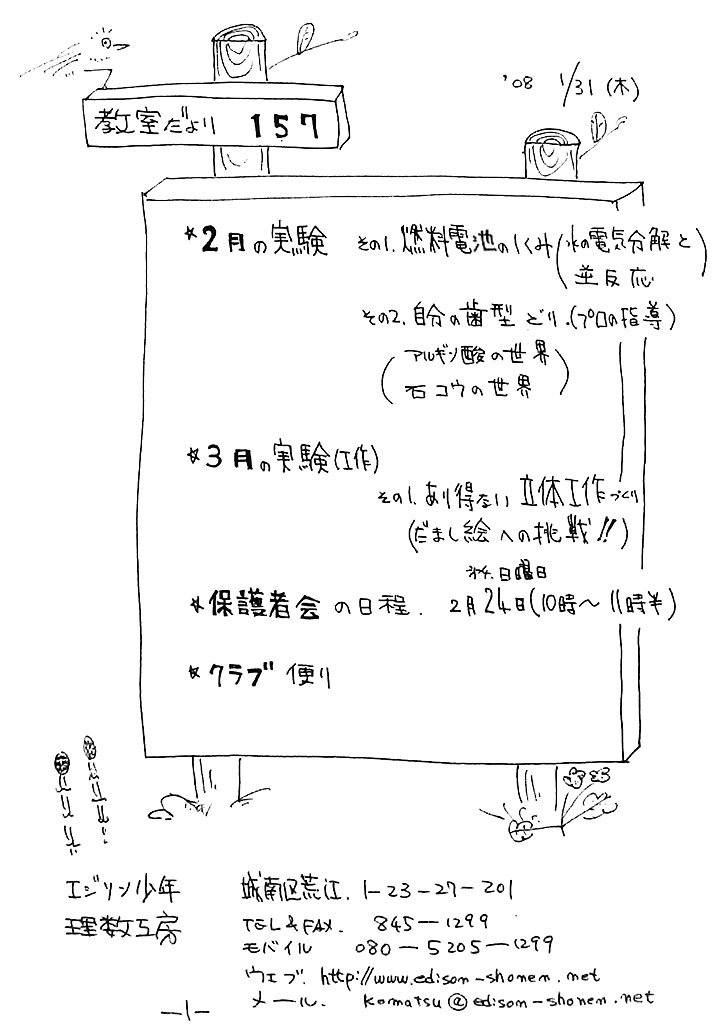 '08 1/31 (木)
教室だより 157
*2月の実験 その1.燃料電池のしくみ(水の電気分解と
逆反応)
その2.自分の歯型どり.(プロの指導)
(アルギン酸の世界
石コウの世界)
*3月の実験(工作)
その1.あり得ない立体工作づくり
(だまし絵への挑戦!!)
第4.日曜日
*保護者会の日程. 2月24日(10時〜11時半)
*クラブ便り
エジソン少年 城南区荒江.1-23-27-201
理数工房 TEL&FAX. 845-1299
モバイル 080-5205-1299
ウェブ. http://www.edison-shonen.net
メール. komatsu@edison-shonen.net
-1-